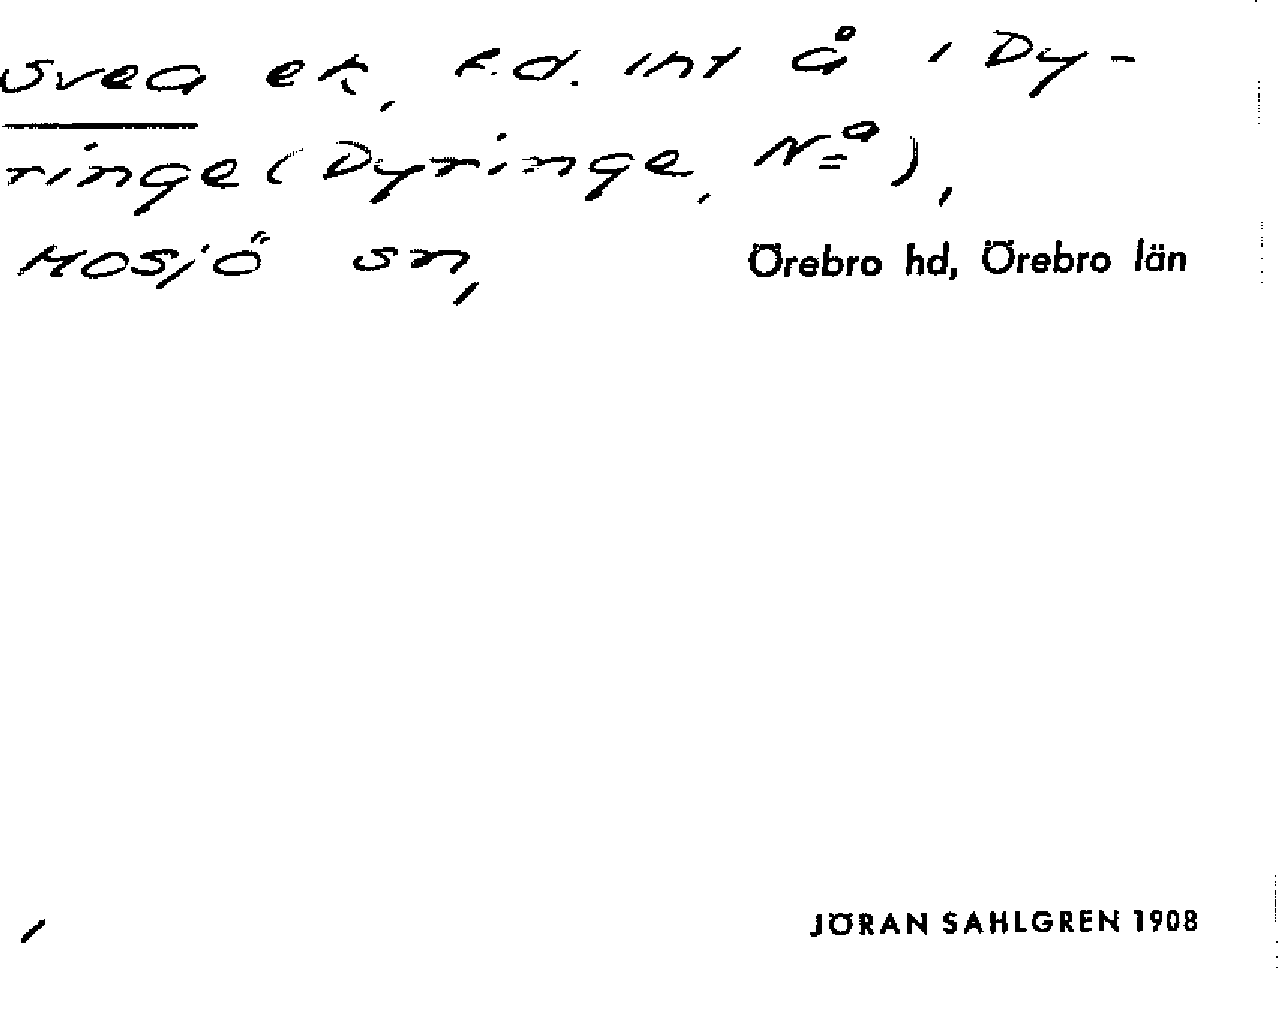 Svea ek, f.d. int å i Dy-
ringe (Dyringe, Nª),
Mosjö sn, Örebro hd, Örebro län
JÖRAN SAHLGREN 1908